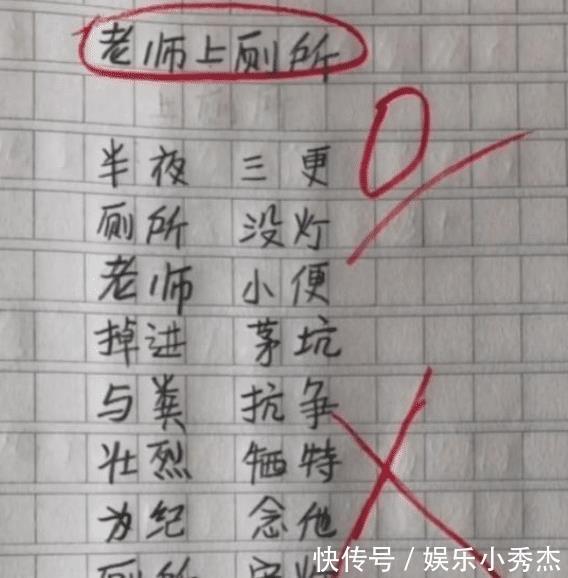 老师上厕所
0
半夜 三更
厕所 没灯
老师 小便
掉进 茅坑
与粪 抗争
壮烈 牺特
为纪 念他
厕所 安灯
快传号/娱乐小秀杰